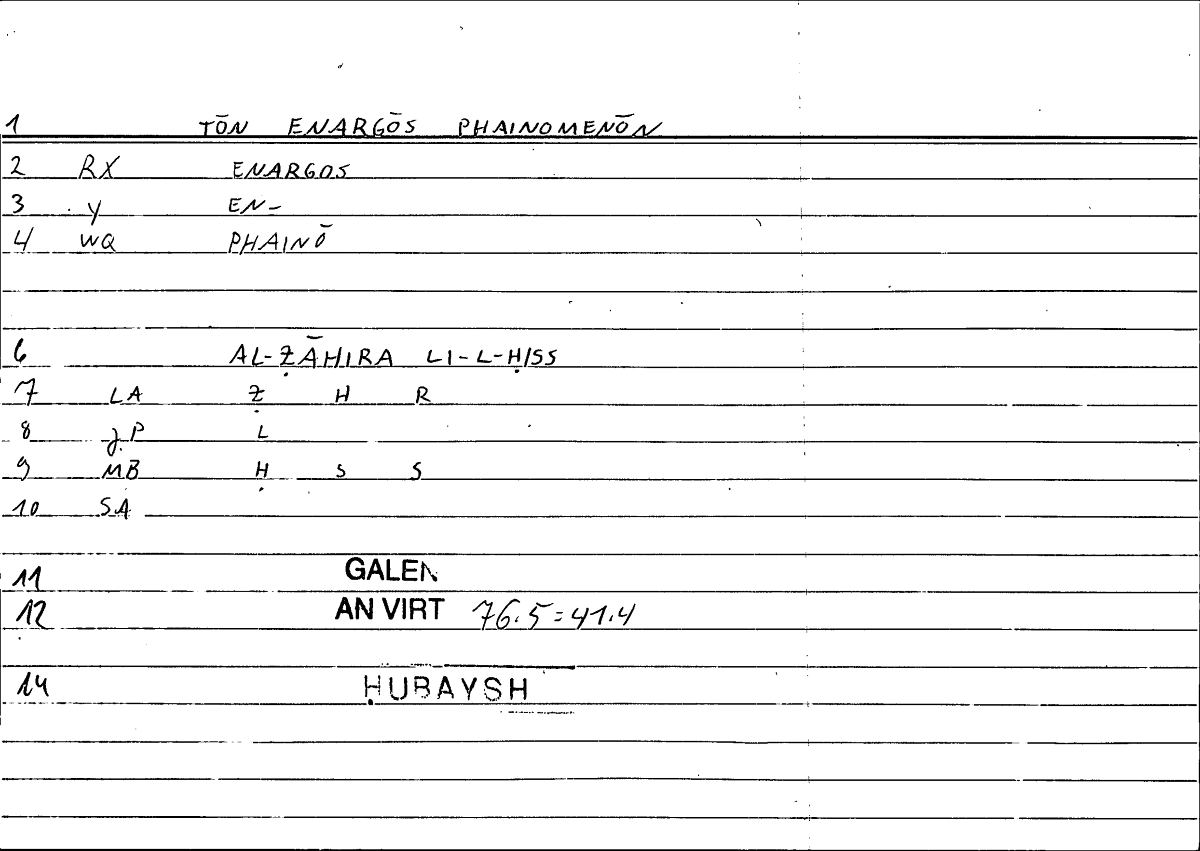 1 TŌN ENARGŌS PHAINOMENŌN
2 RX ENARGOS
3 Y EN-
4 WQ PHAINŌ
6 AL-ẒĀHIRA LI-L-ḤISS
7 LA Ẓ H R
8 J.P L
9 MB Ḥ S S
10 SA
11 GALEN
12 AN VIRT 76.5=41.4
14 ḤUBAYSH